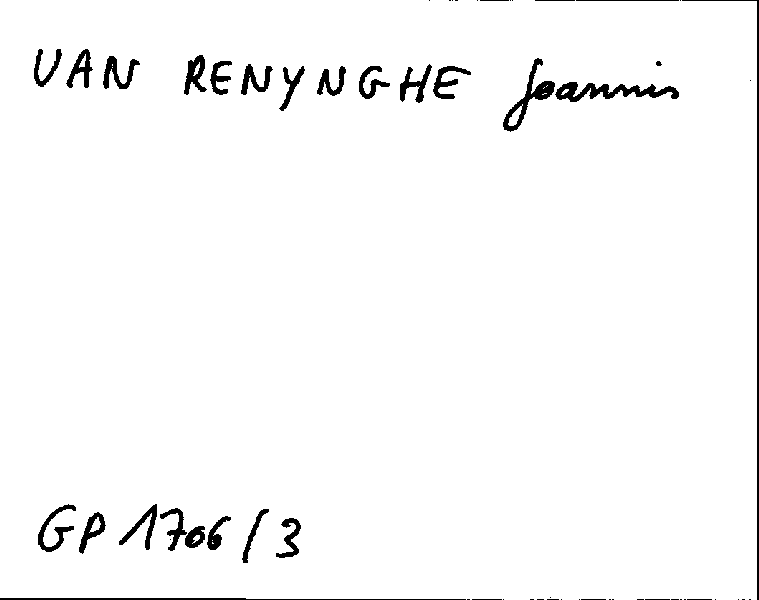 VAN RENYNGHE Joannis
GP 1706/3